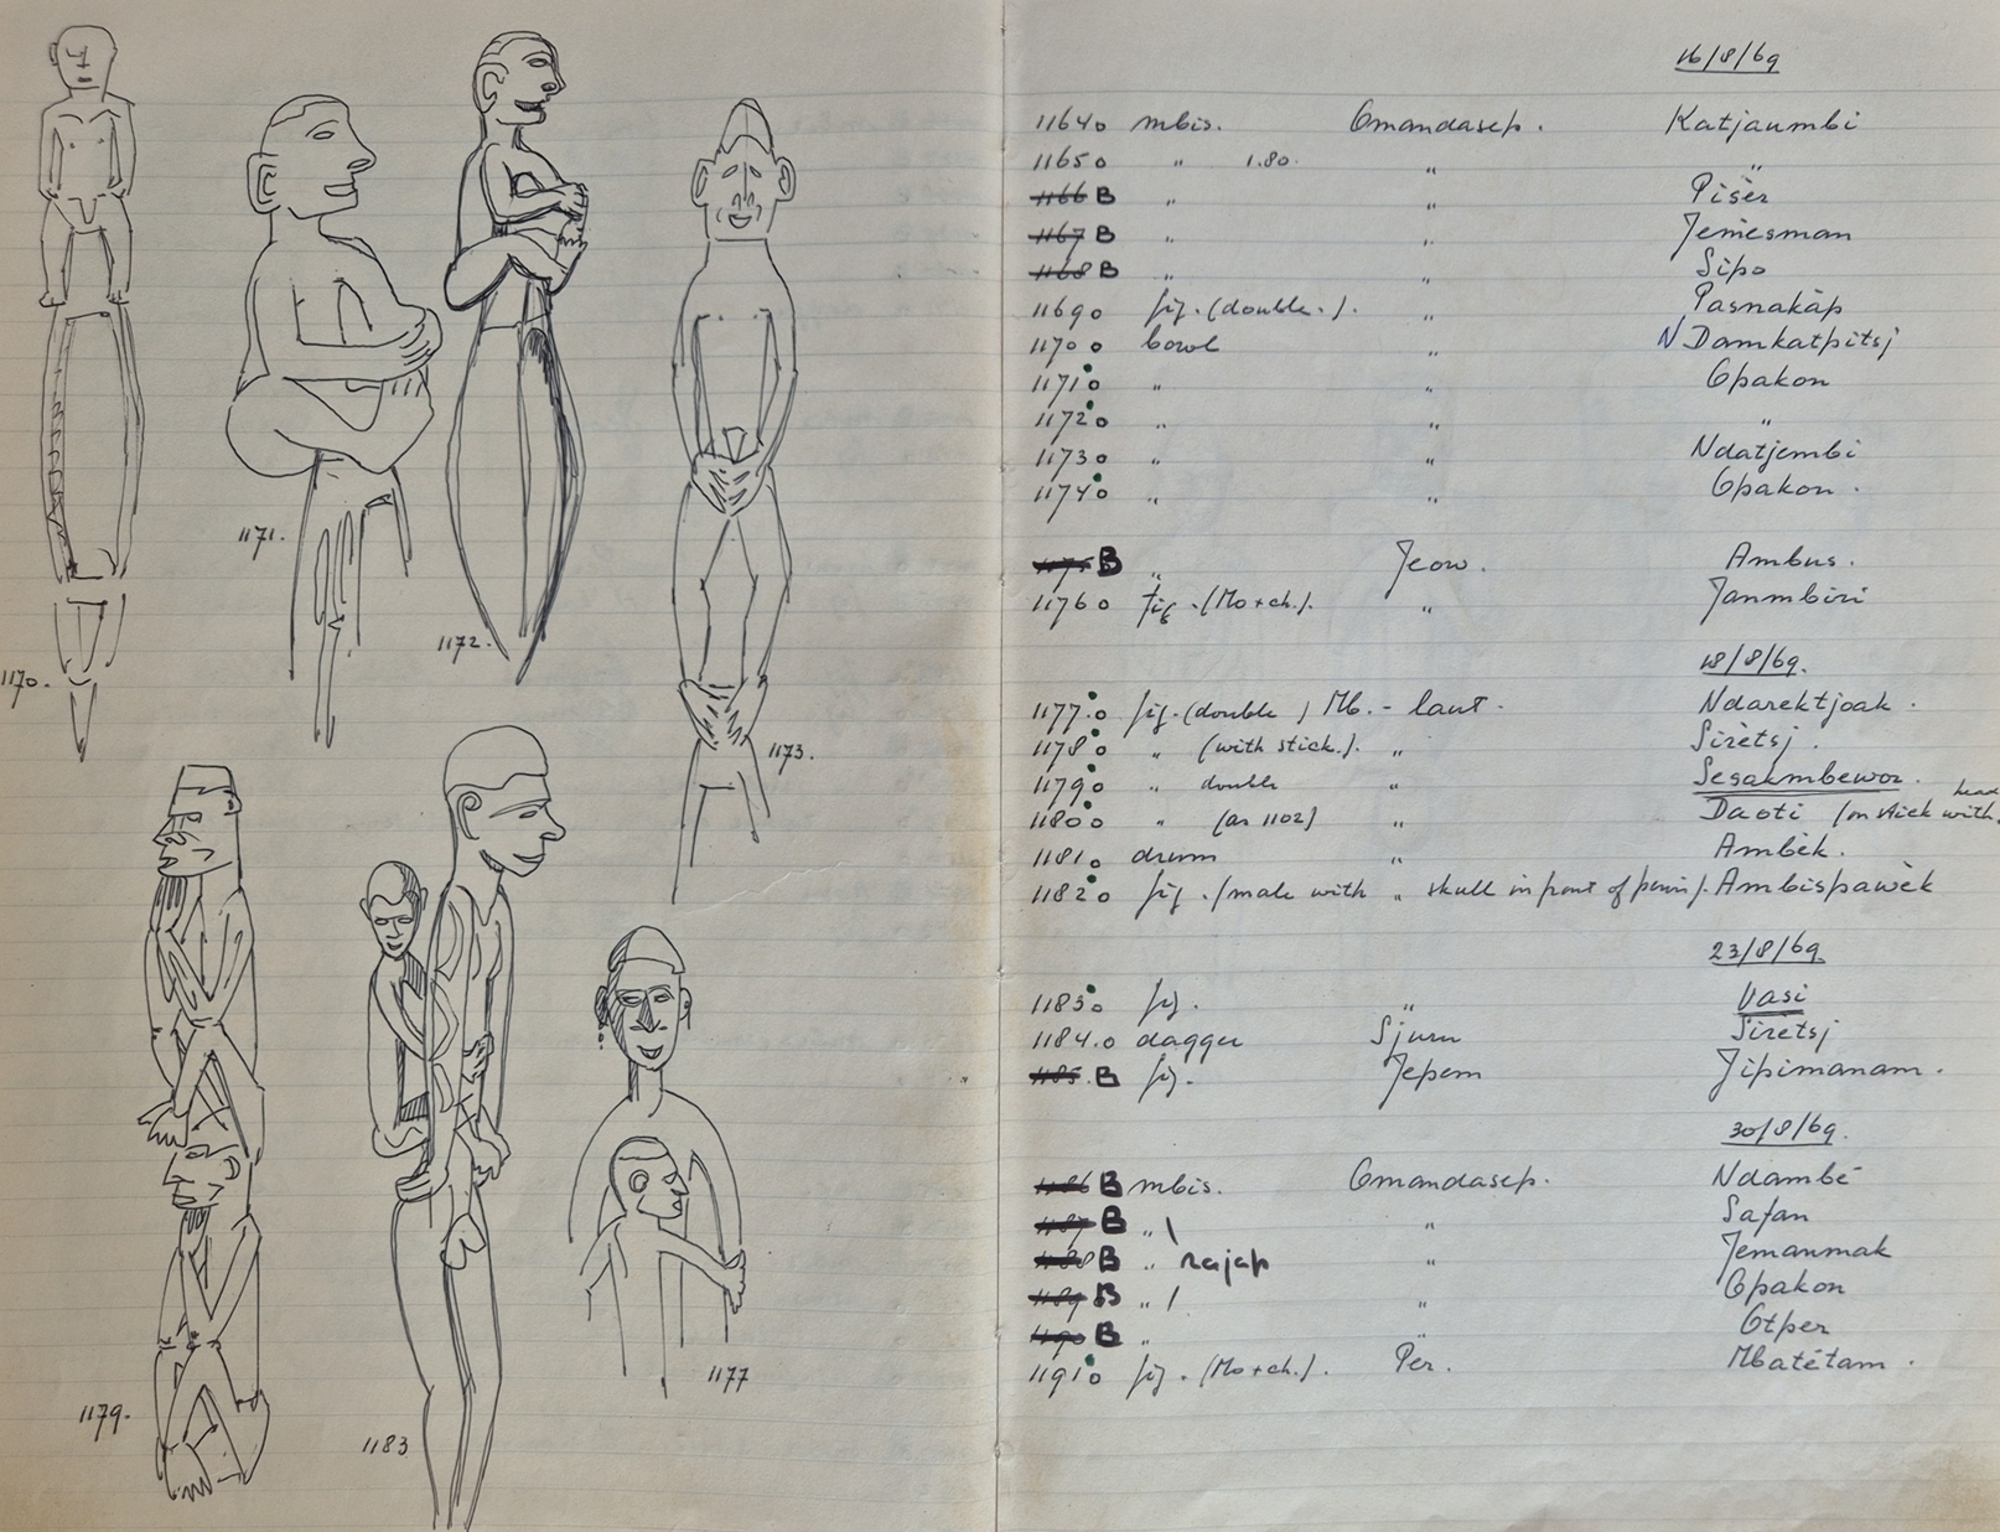 1170.
1171.
1172.
1173.
1179.
1183
1177
16/8/69
1164 o mbis. Omandasep. Katjaumbi
1165 o " 1.80. " "
1166 B " " Pisèr
1167 B " " Jemesman
1168 B " " Sipo
1169 o fig. (double.). " Pasnakàp
1170 o bowl " NDamkatpitsj
1171 o " " Opakon
1172 o " " "
1173 o " " Ndatjembi
1174 o " " Opakon.
1175 B " Jeow. Ambus.
1176 o fig. (Mo+ch.). " Janmbiri
18/8/69.
1177. o fig. (double) Mb. - laut. Ndarektjoak.
1178 o " (with stick.). " Sirètsj.
1179 o " double " Sesakmbewor.
1180 o " (as 1102) " Daoti (on stick with head
1181 o drum " Ambèk.
1182 o fig. (male with " skull in front of penis). Ambispawèk
23/8/69.
1183 o fig. " Vasi
1184. o dagger Sjuru Sirètsj
1185. B fig. Jepem Jipimanam.
30/8/69.
1186 B mbis. Omandasep. Ndambé
1187 B " \ " Safan
1188 B " rajap " Jemanmak
1189 B " / " Opakon
1190 B " " Otper
1191 o fig. (Mo+ch.). Per. Mbatétam.